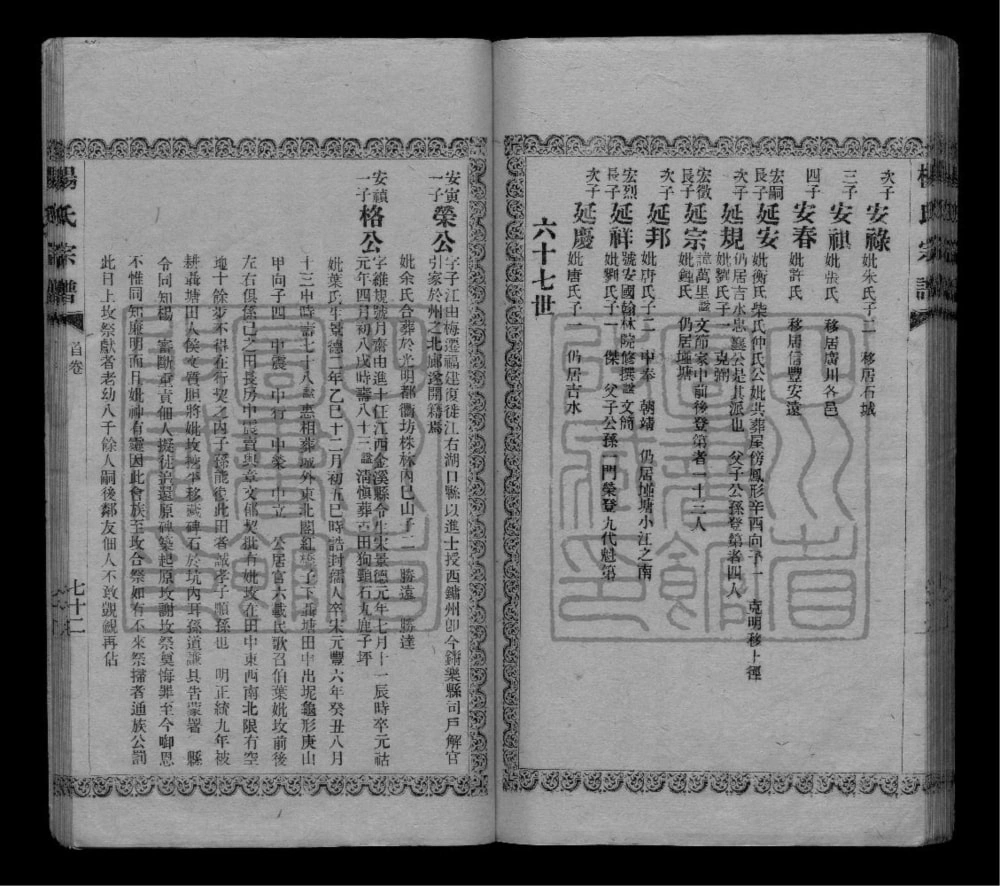 次子 安祿 妣朱氏子二 移居石城
三子 安祺 妣張氏 移居廣川各邑
四子 安春 妣許氏 移居信豐安遠
宏嗣長子 延安 妣衡氏柴氏仲氏公妣共葬屋傍鳳形辛酉向子一 克明移上徑
次子 延規 仍居吉水忠襄公是其派也 父子公孫登第者四人 妣劉氏子一 克弼
宏徵長子 延宗 諱萬里諡文節家中前後登第者一十三人 妣鍾氏 仍居塘
次子 延邦 妣唐氏子二 中奉 朝靖 仍居塘小江之南
宏烈長子 延祥 號安國翰林院修撰諡文簡 妣劉氏子一 傑 父子公孫一門榮登九代魁第
次子 延慶 妣唐氏子一 仍居吉水
六十七世
安寅一子 榮公 字子江由梅遷福建復徙江右湖口縣以進士授西鏞州卽今鏞樂縣司戶解官引家於州之北鄉遂開籍焉
妣余氏合葬於光明都衢坊株林內巳山子二 勝遠 勝達
安禎一子 格公 字維規號月齋由進士任江西金溪縣令生宋景德元年七月十一辰時卒元祜元年四月初八戌時壽八十三諡清愼葬古田狗頸石丸鹿子坪
妣葉氏生景德二年乙巳十二月初五巳時誥封孺人卒宋元豐六年癸丑八月
十三申時壽七十八諡惠相葬城外東北關紅子下聶塘田中出坭龜形庚山
甲向子四 中震 中行 中榮 中立 公居官六載民歌召伯葉妣坟前後
左右俱係己之田長房中震賣與章文郁契批有妣坟在田中東西南北限有空
地十餘步不得在行契之內子孫能復此田者誠孝子順孫也 明正統九年被
耕聶塘田人侯文質胆將妣坟挖平移藏碑石於坑內耳孫道謙具告蒙署 縣
令同知楊 審斷重責佃人擬徒流還原碑築起原坟謝坟祭奠悔罪至今啣恩
不惟同知廉明而且妣神有靈因此會族至坟合祭如有不來祭掃者通族公罰
此日上坟祭獻者老幼八千餘人嗣後鄰友佃人不敢覬覦再佔
楊氏宗譜
首卷
七十二